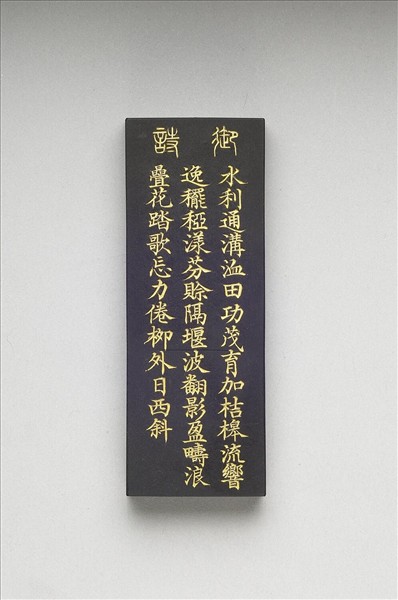 御詩
水利通溝洫田功茂育加桔槔流響
逸䆉稏漾芬賒隔堰波翻影盈疇浪
疊花踏歌忘力倦柳外日西斜